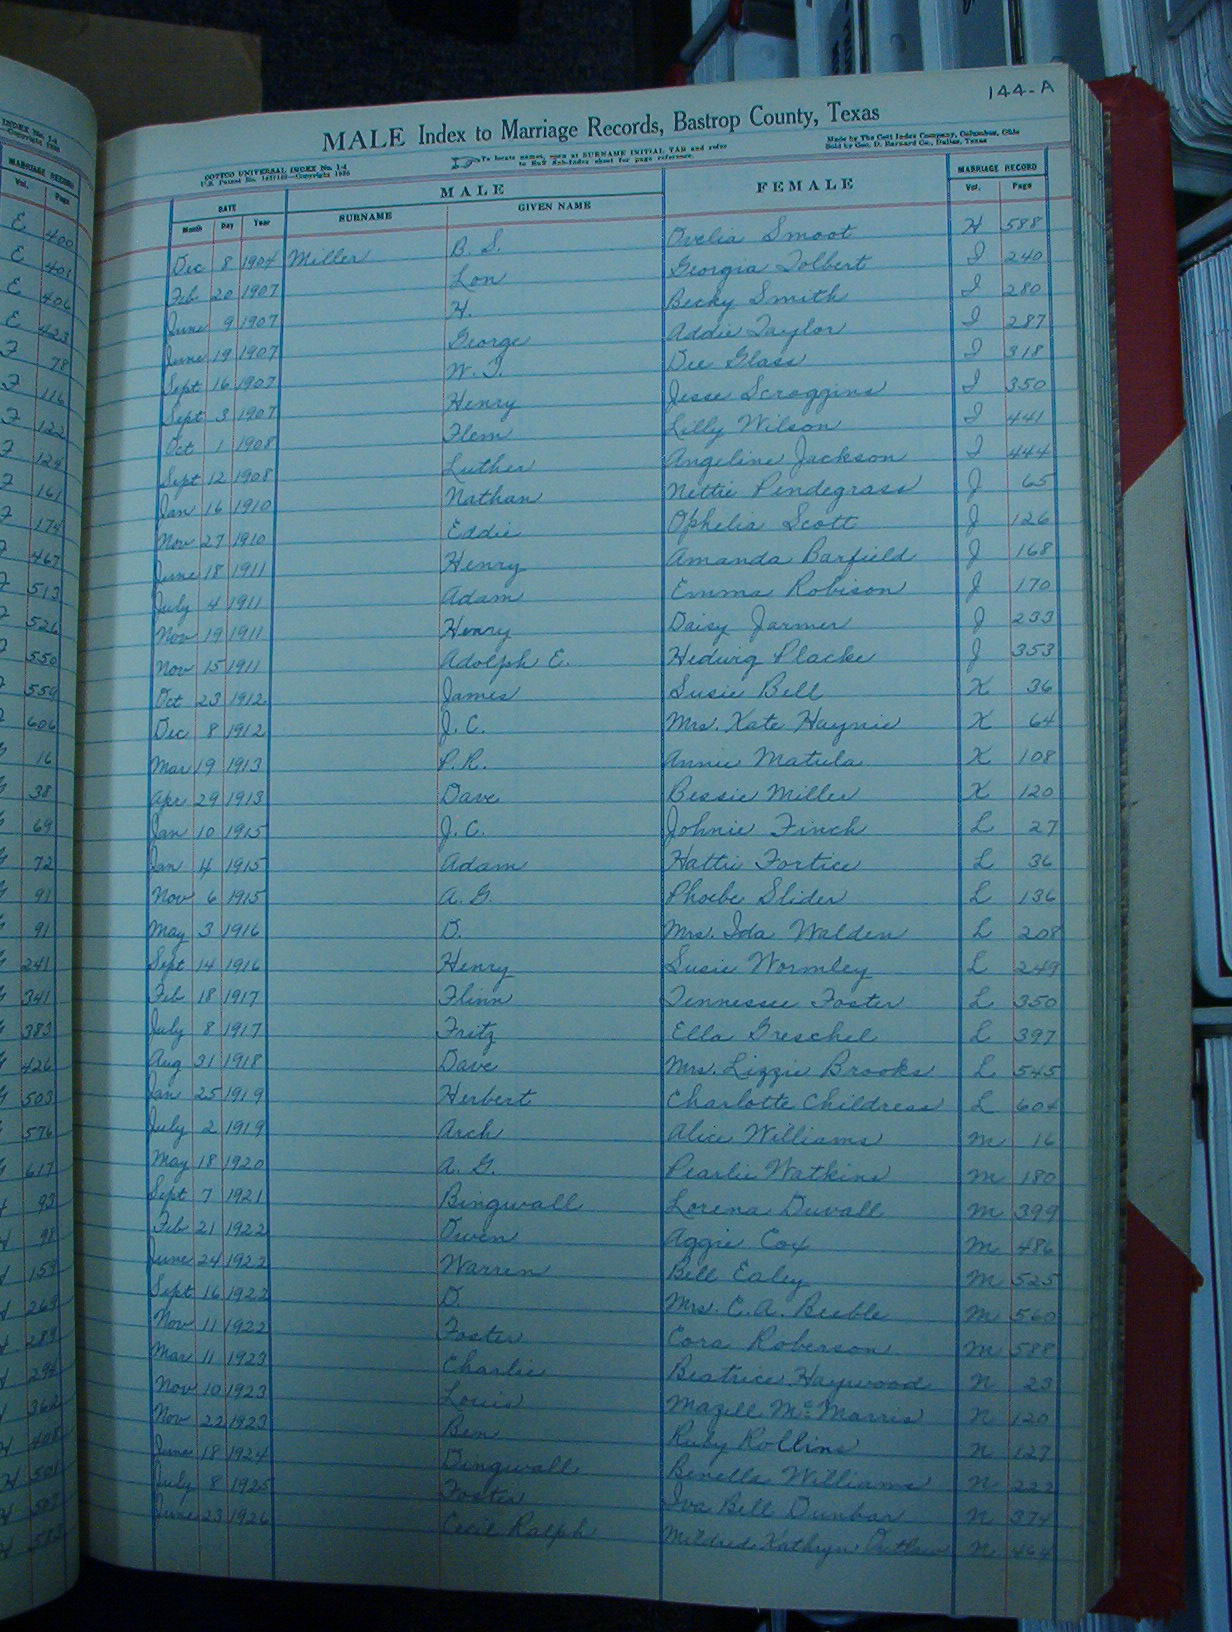 INDEX No. 1-4
MARRIAGE RECORD
Vol. Page
E 400
E 401
E 406
E 423
F 78
F 116
F 122
F 124
F 161
F 174
467
513
526
550
559
606
16
38
69
72
91
91
241
341
383
426
503
576
617
93
98
159
269
289
294
362
408
H 501
144-A
MALE Index to Marriage Records, Bastrop County, Texas
COTTCO UNIVERSAL INDEX No. 1-4
To locate names, open at SURNAME INITIAL TAB and refer
to Sub-Index sheet for page reference.
Made by The Cott Index Company, Columbus, Ohio
Sold by Geo. D. Barnard Co., Dallas, Texas
DATE MALE FEMALE MARRIAGE RECORD
Month Day Year SURNAME GIVEN NAME Vol. Page
Dec 8 1904 Miller B. S. Ovelia Smoot H 588
Feb 20 1907 Lon Georgia Tolbert I 240
June 9 1907 H. Becky Smith I 280
June 19 1907 George Addie Taylor I 287
Sept 16 1907 W. T. Dee Glass I 318
Sept 3 1907 Henry Jesse Scroggins I 350
Oct 1 1908 Flem Lilly Wilson I 441
Sept 12 1908 Luther Angeline Jackson I 444
Jan 16 1910 Nathan Nettie Pendegrass J 65
Nov 27 1910 Eddie Ophelia Scott J 126
June 18 1911 Henry Amanda Barfield J 168
July 4 1911 Adam Emma Robison J 170
Nov 19 1911 Henry Daisy Jarmer J 233
Nov 15 1911 Adolph E. Hedwig Placke J 353
Oct 23 1912 James Susie Bell K 36
Dec 8 1912 J. C. Mrs. Kate Haynie K 64
Mar 19 1913 P. R. Annie Matula K 108
Apr 29 1913 Dave Bessie Miller K 120
Jan 10 1915 J. C. Johnie Finch L 27
Jan 4 1915 Adam Hattie Fortice L 36
Nov 6 1915 A. G. Phoebe Slider L 136
May 3 1916 D. Mrs. Ida Walden L 208
Sept 14 1916 Henry Susie Wormley L 249
Feb 18 1917 Flinn Tennessee Foster L 350
July 8 1917 Fritz Ella Greschel L 397
Aug 31 1918 Dave Mrs. Lizzie Brooks L 545
Jan 25 1919 Herbert Charlotte Childress L 604
July 2 1919 Arch Alice Williams M 16
May 18 1920 A. G. Pearlie Watkins M 180
Sept 7 1921 Bingwall Lorena Duvall M 399
Feb 21 1922 Owen Aggie Cox M 486
June 24 1922 Warren Bell Ealey M 525
Sept 16 1922 D. Mrs. C. A. Beeble M 560
Nov 11 1922 Foster Cora Roberson M 588
Mar 11 1923 Charlie Beatrice Haywood N 23
Nov 10 1923 Louis Mazell McMarris N 120
Nov 22 1923 Ben Ruby Rollins N 127
June 18 1924 Dingwall Benella Williams N 222
July 8 1925 Foster Iva Bell Dunbar N 374
June 23 1926 Cecil Ralph Mildred Kathryn Outlaw N 464